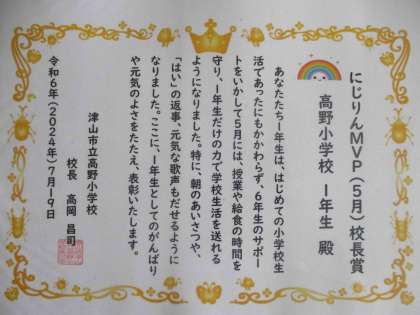 にじりんMVP(5月)校長賞
高野小学校 1年生 殿
あなたたち1年生は、はじめての小学校生
活であったにもかかわらず、6年生のサポー
トをいかして5月には、授業や給食の時間を
守り、1年生だけの力で学校生活を送れる
ようになりました。特に、朝のあいさつや、
「はい」の返事、元気な歌声もだせるように
なりました。ここに、1年生としてのがんばり
や元気のよさをたたえ、表彰いたします。
令和6年(2024年)7月19日
津山市立高野小学校
校長 高岡 昌司